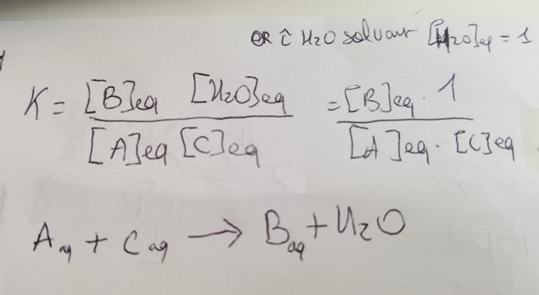 OR ĉ H2O solvant [H2O]eq = 1
K = [B]eq [H2O]eq / [A]eq [C]eq = [B]eq · 1 / [A]eq · [C]eq
Aaq + Caq → Baq + H2O